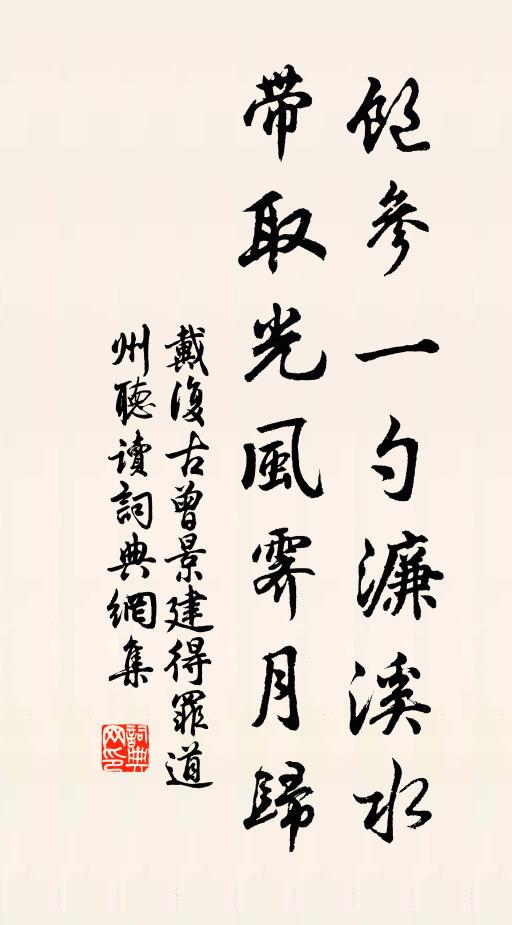 飽參一勺濂溪水
帶取光風霽月歸
戴復古曾景建得罪道
州聽讀詞典網集
詞典
网印